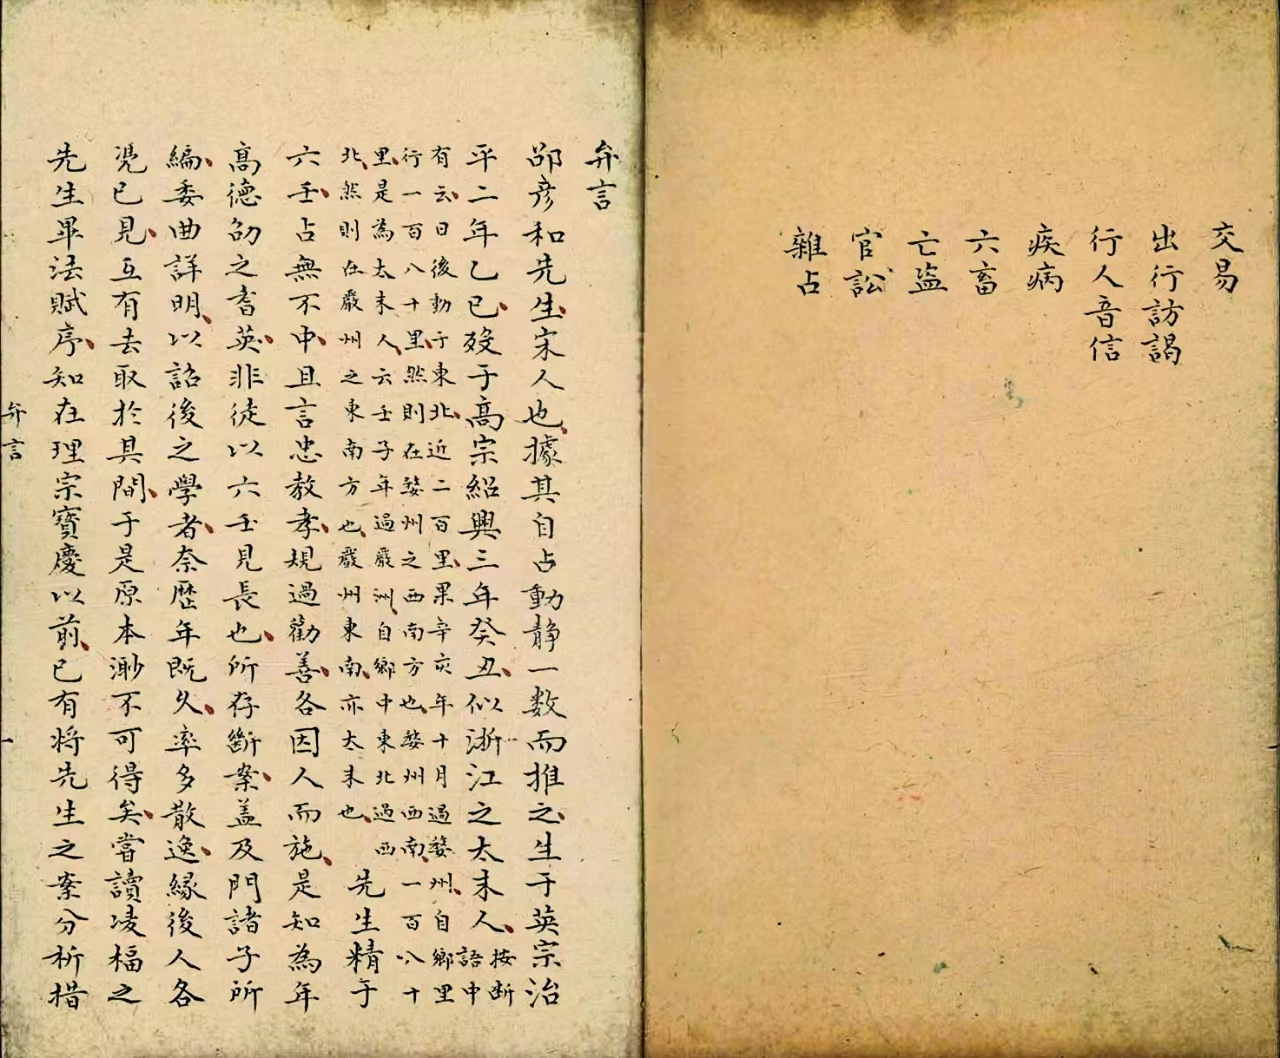 交易
出行訪謁
行人音信
疾病
六畜
亡盜
官訟
雜占
弁言
邵彦和先生宋人也據其自占動静一数而推之生于英宗治
平二年乙巳殁于高宗紹興三年癸丑似浙江之太末人
按断
語中
有云日後動于東北近二百里果辛亥年十月過婺州自鄉里
行一百八十里然則在婺州之西南方也婺州西南一百八十
里是為太末人云壬子年過嚴洲自鄉中東北過西
北然則在嚴州之東南方也嚴州東南亦太末也
先生精于
六壬占無不中且言忠教孝規過勸善各因人而施是知為年
高德劭之耆英非徒以六壬見長也所存斷案盖及門諸子所
編委曲詳明以詔後之學者奈歷年既久率多散逸緣後人各
凴已見互有去取於其間于是原本渺不可得矣嘗讀凌福之
先生畢法賦序知在理宗寶慶以前已有将先生之案分析措
弁言
一